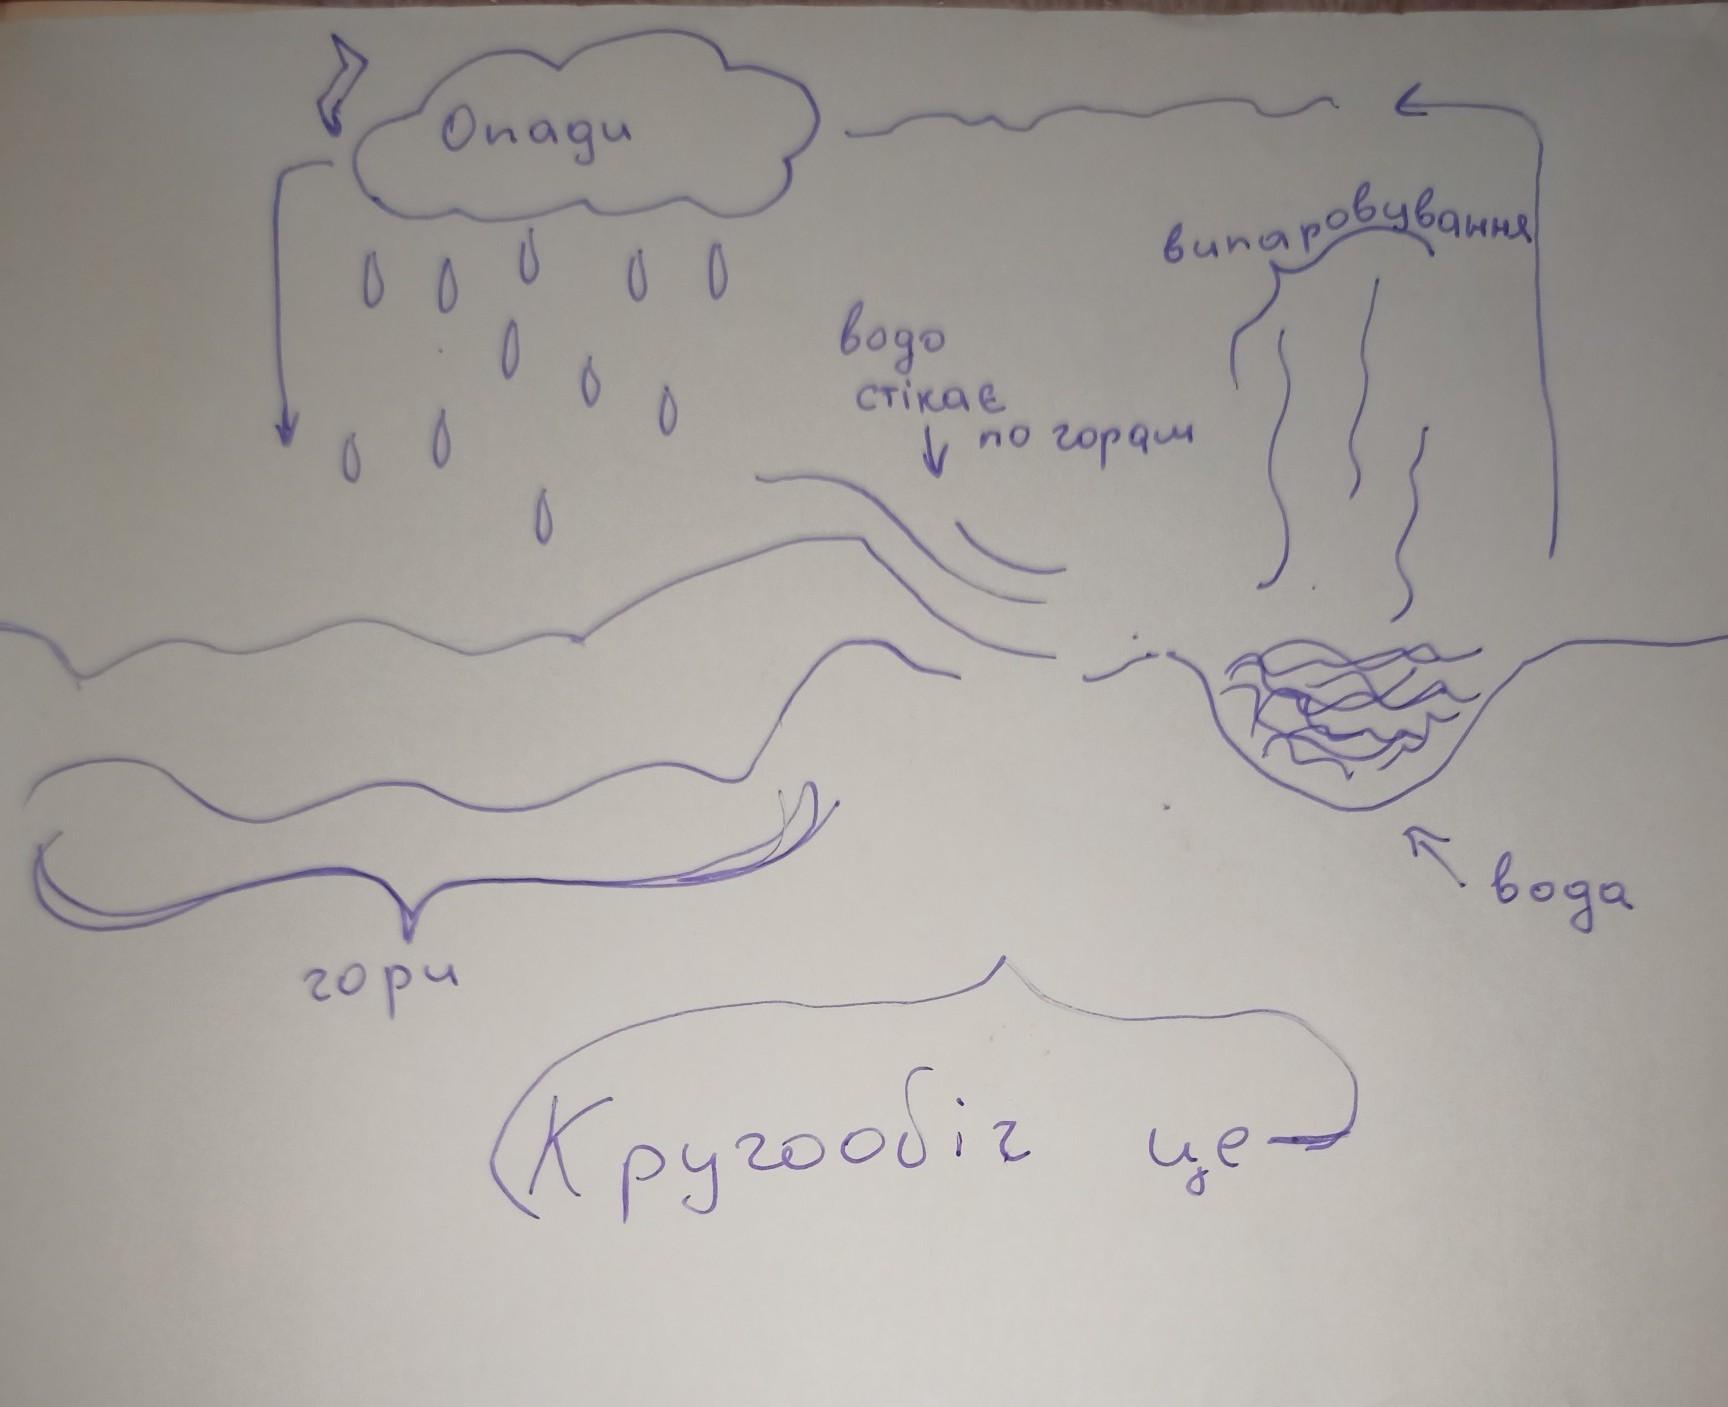 Опади
випаровування
водо
стікає
по горам
вода
гори
Кругообіг це